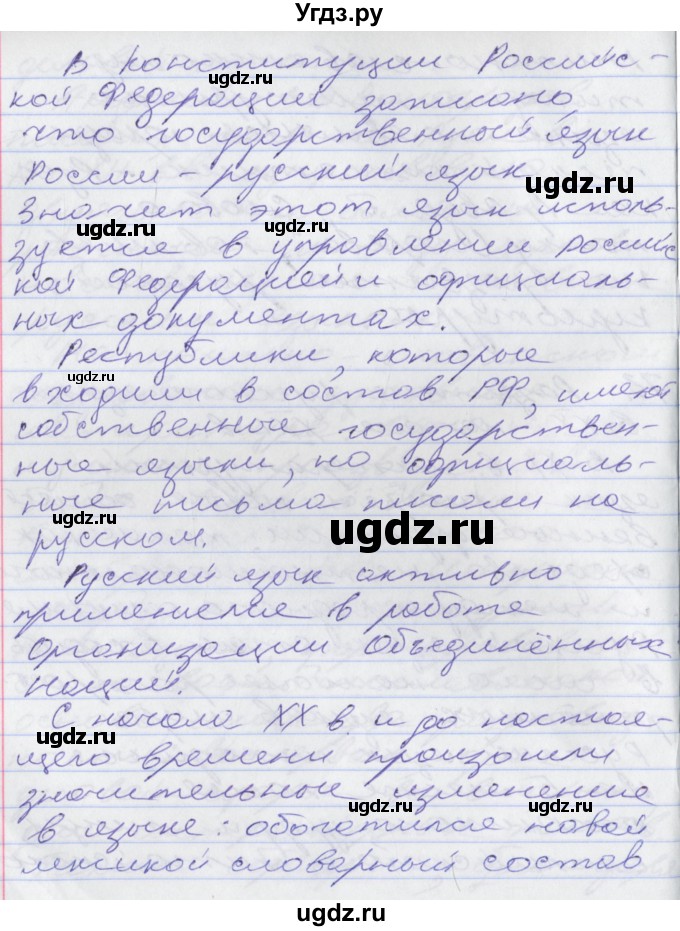 Угдз.ру
В конституции Российс-
кой Федерации записано,
что государственный язык
России – русский язык
Значит этот язык исполь-
зуется в управлении Россий
кой Федерацией и официаль-
ных документах.
Республики, которые
входили в состав РФ, имеют
собственные государствен-
ные языки, но официаль-
ные письма писали на
русском.
Русский язык активно
применяется в работе
Организации Объединённых
Наций.
С начала XX в. и до настоя-
щего времени произошли
значительные изменения
в языке: обогатился новой
лексикой словарный состав
ugdz.ru
ugdz.ru
ugdz.ru
ugdz.ru
ugdz.ru
ugdz.ru
ugdz.ru
ugdz.ru
ugdz.ru
ugdz.ru
ugdz.ru
ugdz.ru
ugdz.ru
ugdz.ru